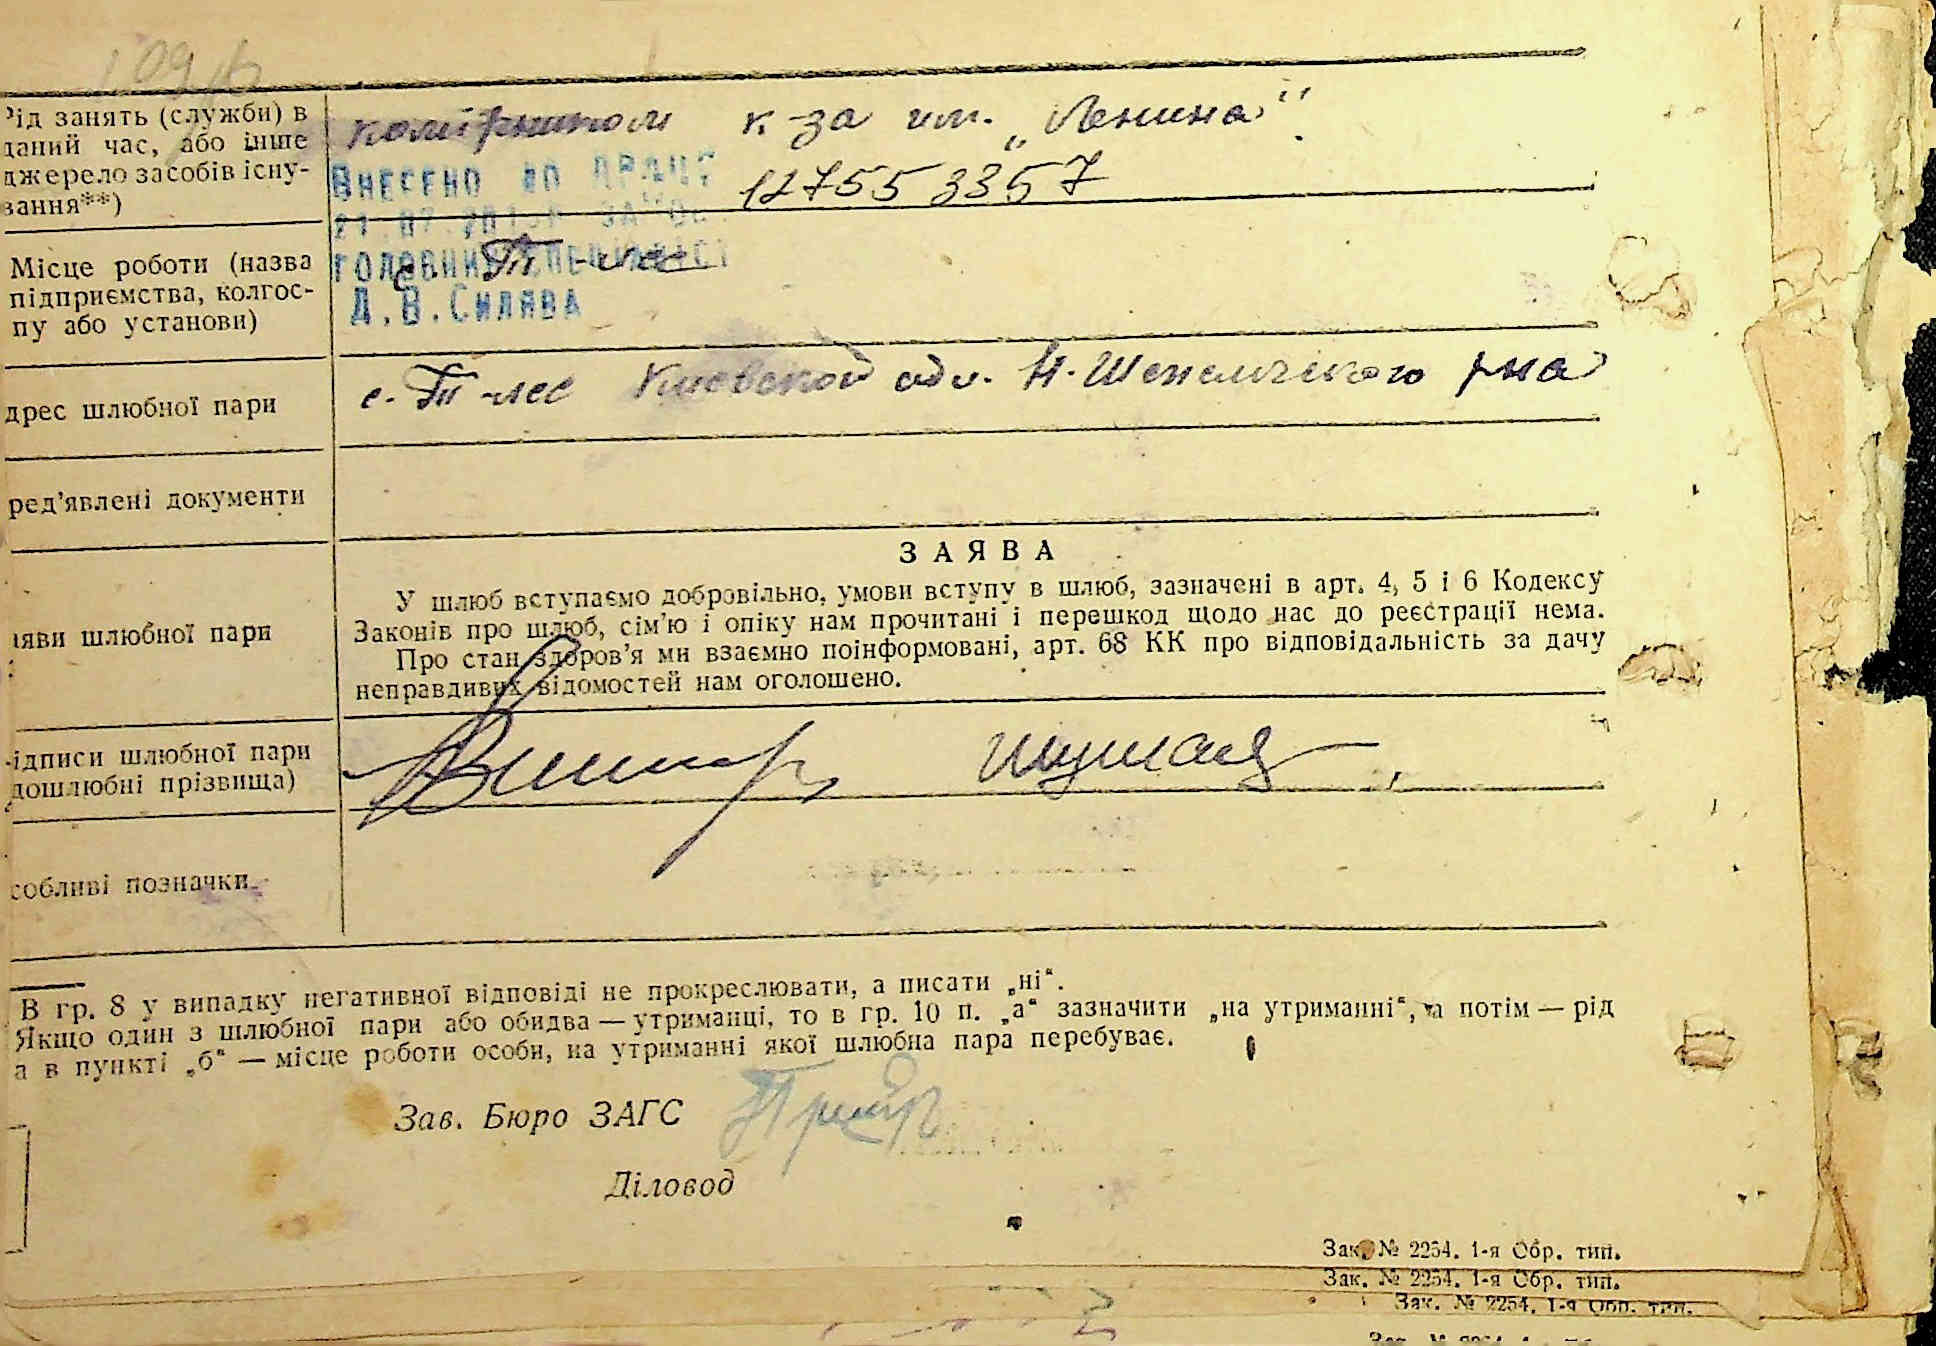 Рід занять (служби) в
даний час, або інше
джерело засобів існу-
вання**)
к-за им. „Ленина"
127553357
ВНЕСЕНО ДО ДРАЦС
ГОЛОВНИЙ СПЕЦІАЛІСТ
Д.В.СИЛЯВА
Місце роботи (назва
підприємства, колгос-
пу або установи)
с. Т-лес
дрес шлюбної пари
с. Т-лес Киевской обл. Н-Шепеличского р-на
ред'явлені документи
ЗАЯВА
аяви шлюбної пари
У шлюб вступаємо добровільно, умови вступу в шлюб, зазначені в арт. 4, 5 і 6 Кодексу
Законів про шлюб, сім'ю і опіку нам прочитані і перешкод щодо нас до реєстрації нема.
Про стан здоров'я ми взаємно поінформовані, арт. 68 КК про відповідальність за дачу
неправдивих відомостей нам оголошено.
ідписи шлюбної пари
дошлюбні прізвища)
собливі позначки
В гр. 8 у випадку негативної відповіді не прокреслювати, а писати „ні“.
Якщо один з шлюбної пари або обидва — утриманці, то в гр. 10 п. „а“ зазначити „на утриманні“, а потім — рід
а в пункті „б“ — місце роботи особи, на утриманні якої шлюбна пара перебуває.
Зав. Бюро ЗАГС
Діловод
Зак. № 2254. 1-я Обр. тип.
Зак. № 2254. 1-я Обр. тип.
Зак. № 2254. 1-я Обр. тип.